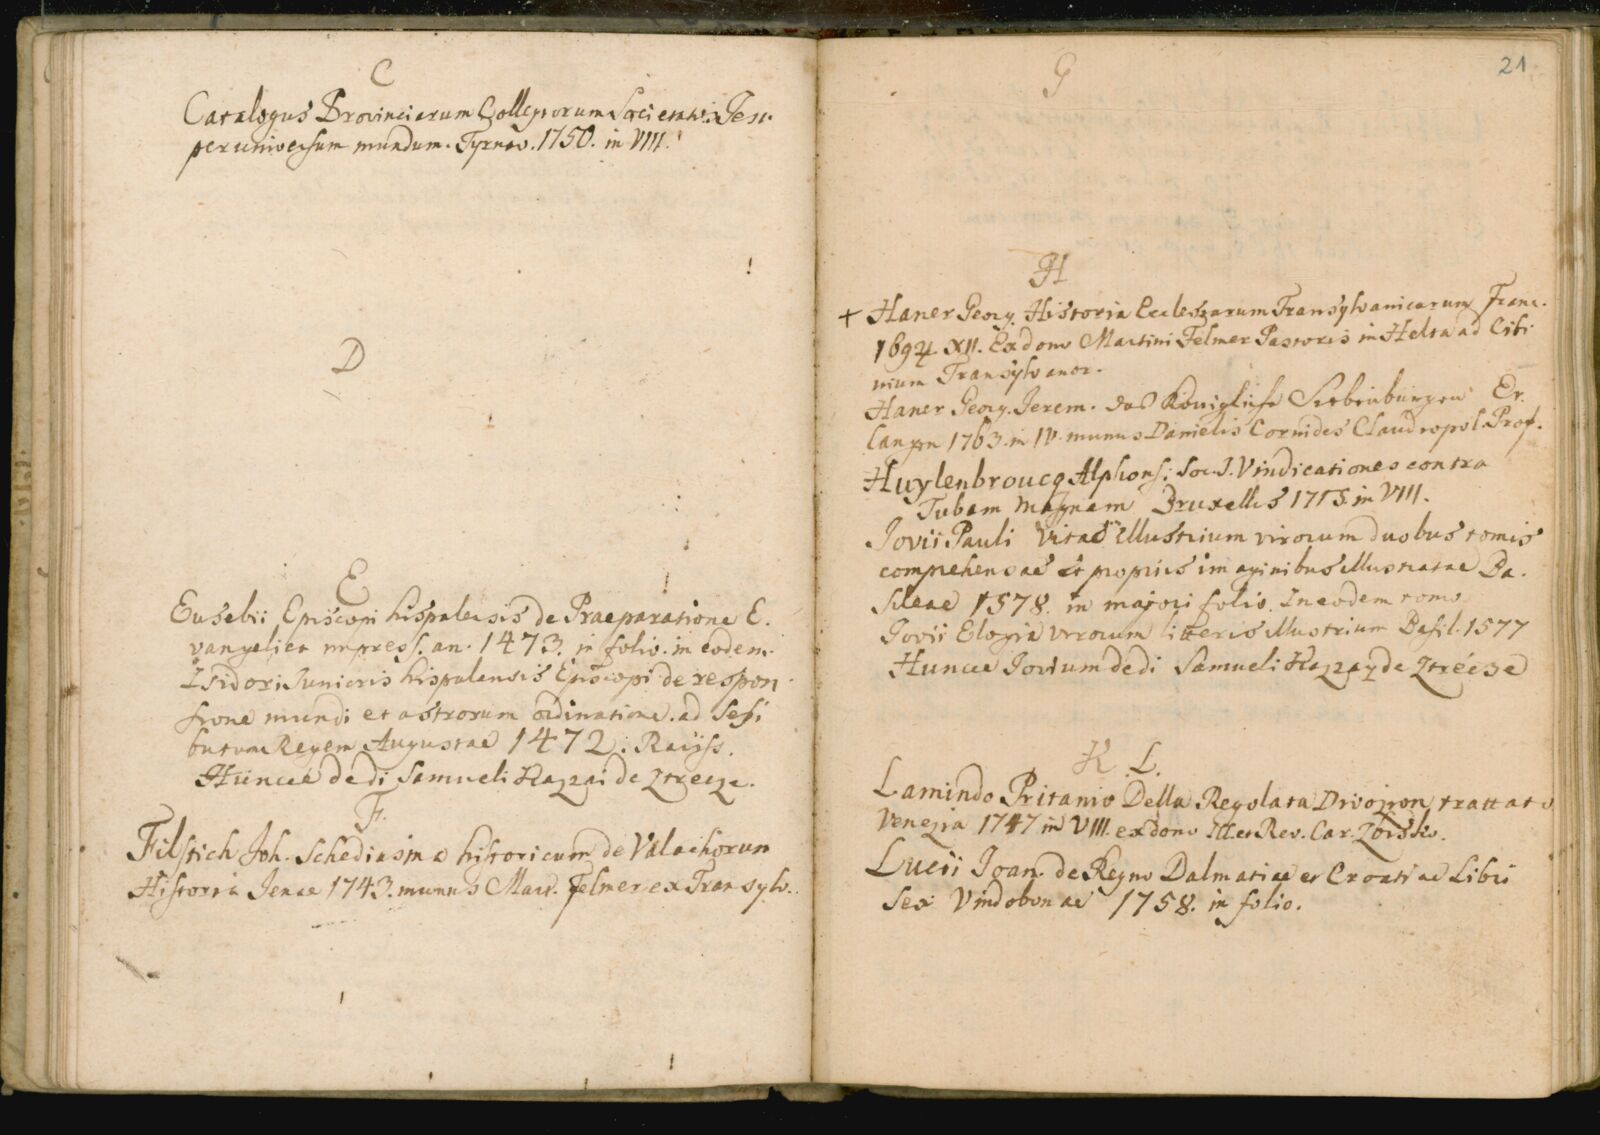 C
Catalogus Provinciarum Collegiorum Societatis Jesu
per universum mundum. Tyrnav. 1750. in VIII.
D
E
Eusebii Episcopi hispalensis de Praeparatione E.
vangelica impress. an. 1473. in folio. in eodem.
Isidori Junioris hispalensis Episcopi de respon
sione mundi et astrorum ordinatione. ad Sesi
butum Regem Augustae 1472.
Huncce dedi Samueli Kazzai de
F.
Filstich Joh. Schediasma historicum de Valachorum
Historia Jenae 1743. munus Mart. Felmer ex Transylv.
21
G
H
+ Haner Georg. Historia Ecclesiarum Transylvanicarum Franc.
1694 XII. Ex dono Martini Felmer Pastoris in Helta ad Cibi
nium Transylvanor.
Haner Georg. Jerem. das Königliche Siebenbürgen Er.
langen 1763. in IV. munus Danielis Cornides Claudiopol. Prof.
Huylenbroucq Alphons: Soc. J. Vindicationes contra
Tubam magnam Bruxellis 1713. in VIII.
Jovii Pauli Vitae illustrium virorum duobus tomis
comprehensae et propriis imaginibus illustratae Ba.
sileae 1578. in majori folio. In eodem tomo
Jovii Elogia virorum litteris illustrium Basil. 1577
Huncce Jovium dedi Samueli Kazzay de
K. L.
Lamindo Pritanio Della Regolata Divozion trattato
Venezia 1747 in VIII. ex dono Rev. Car.
Lucii Joan. de Regno Dalmatiae et Croatiae Libri
Sex Vindobonae 1758. in folio.